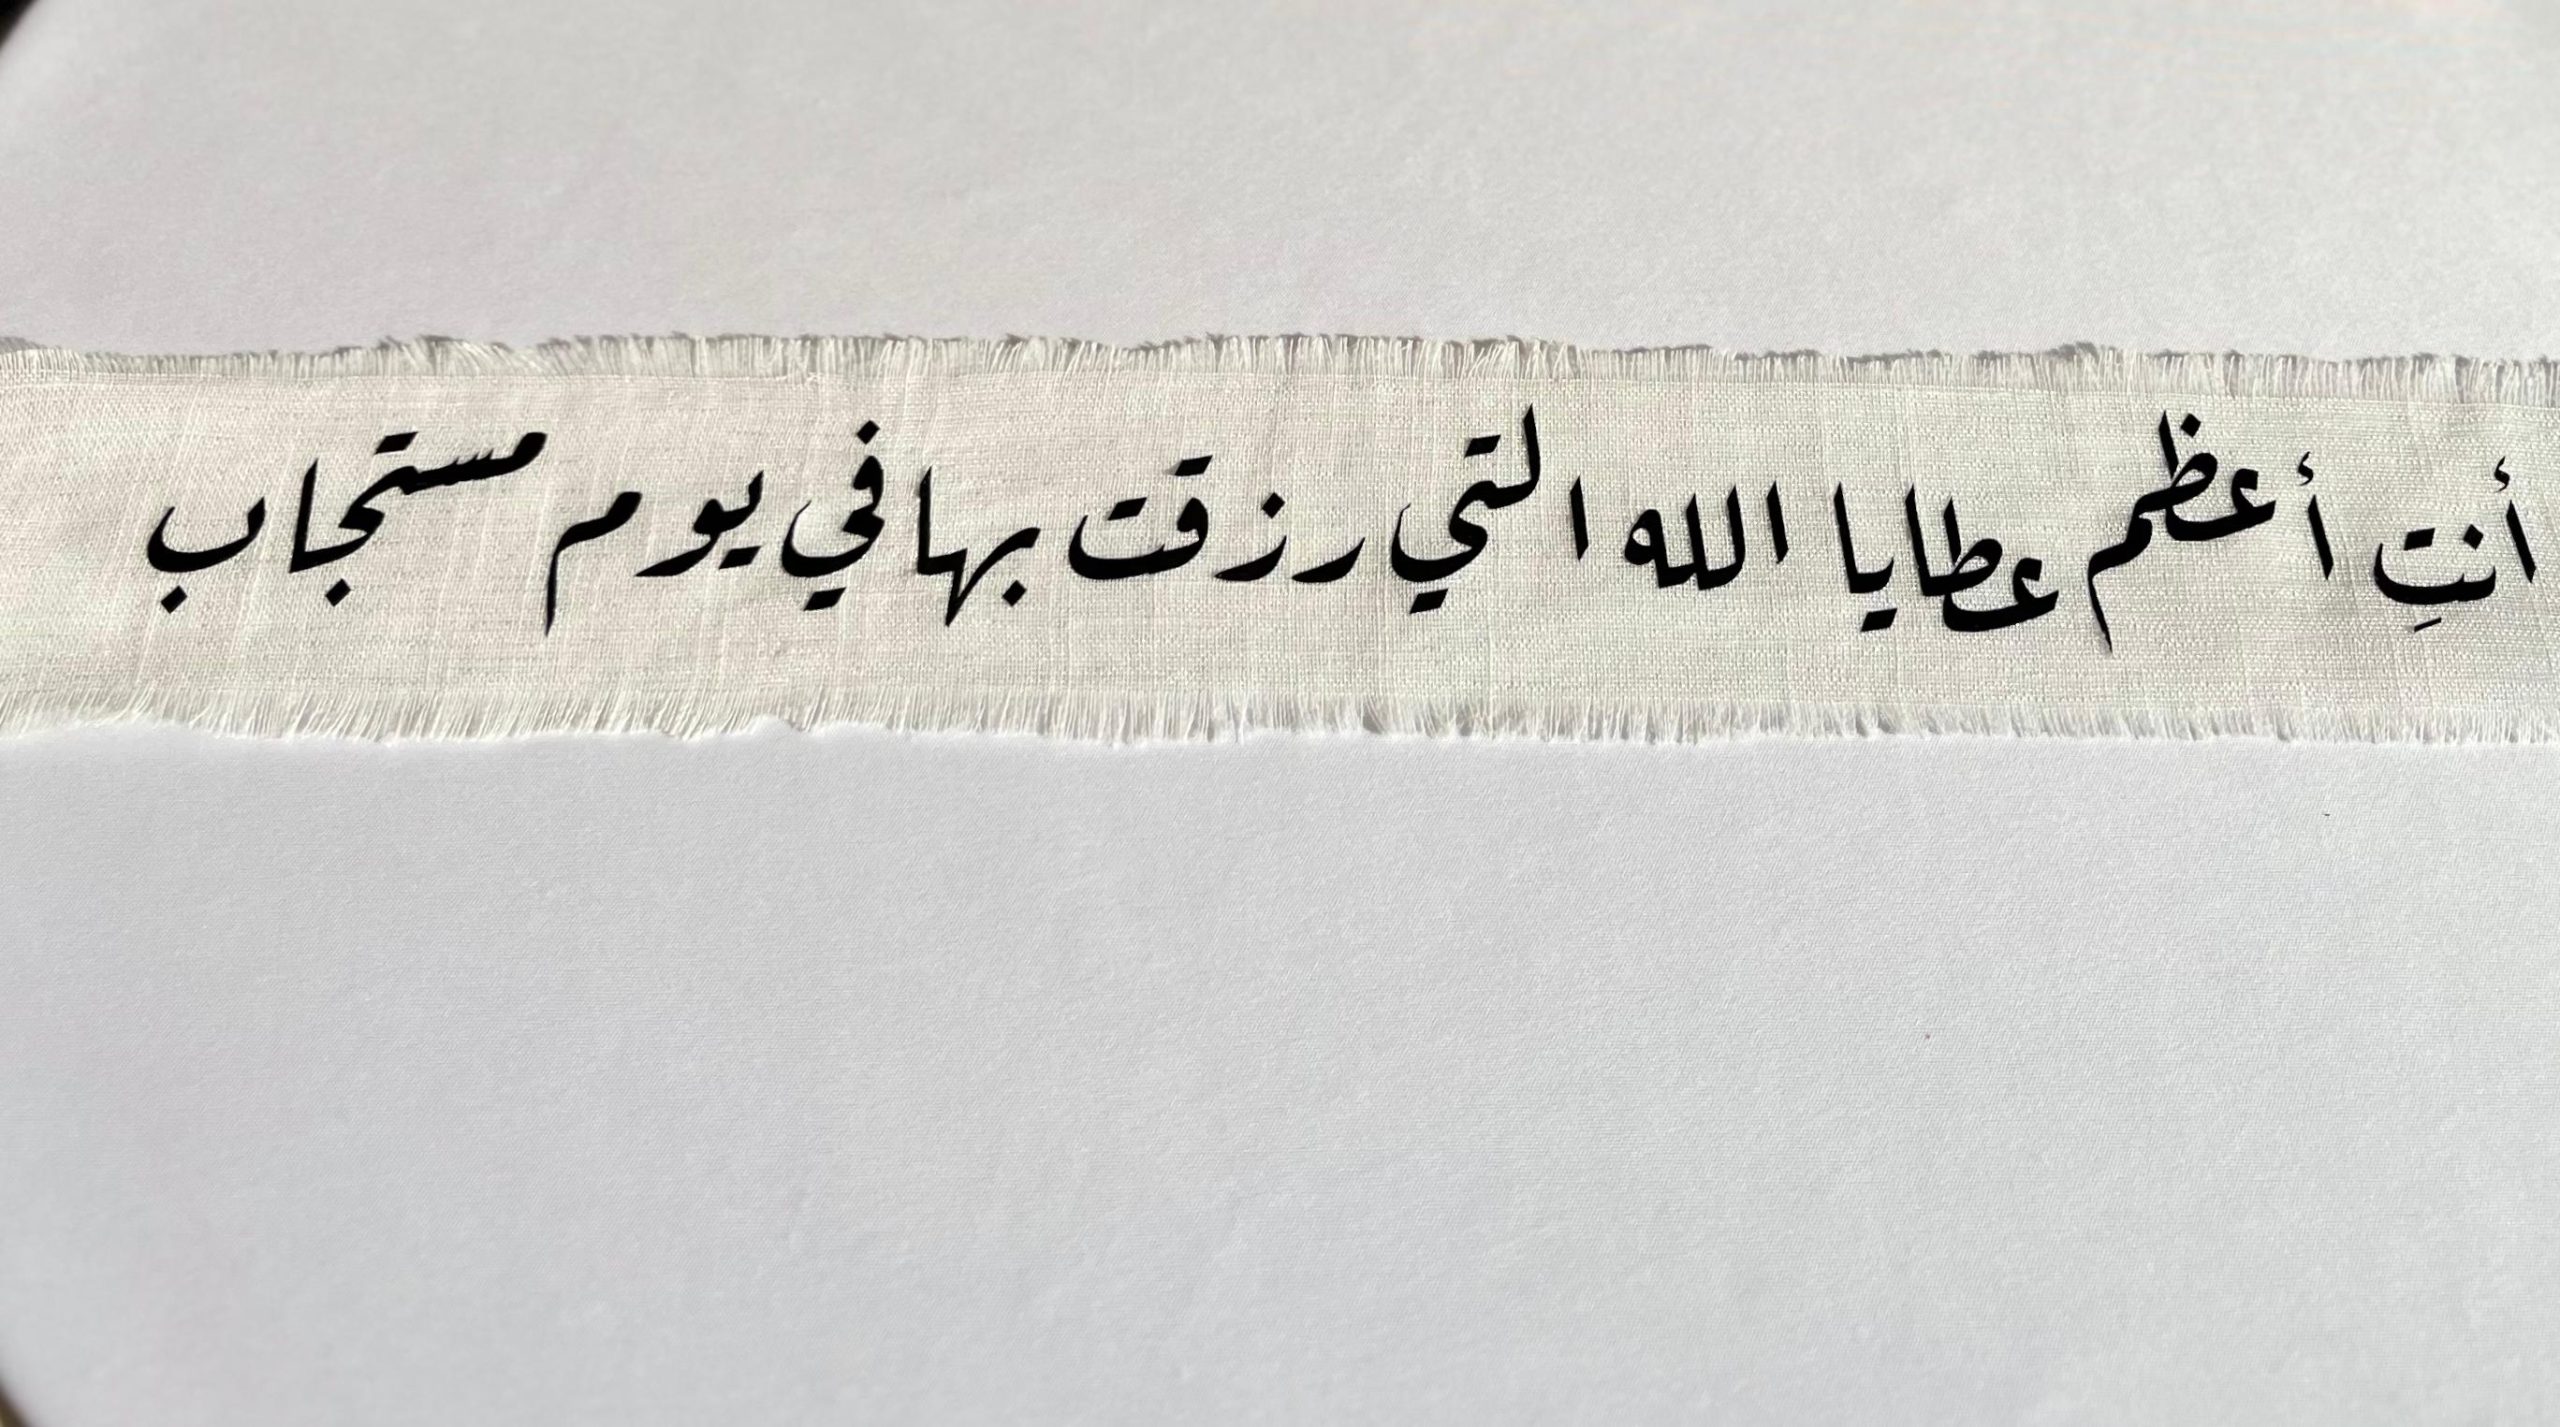 أنتِ أعظم عطايا الله التي رزقت بها في يوم مستجاب